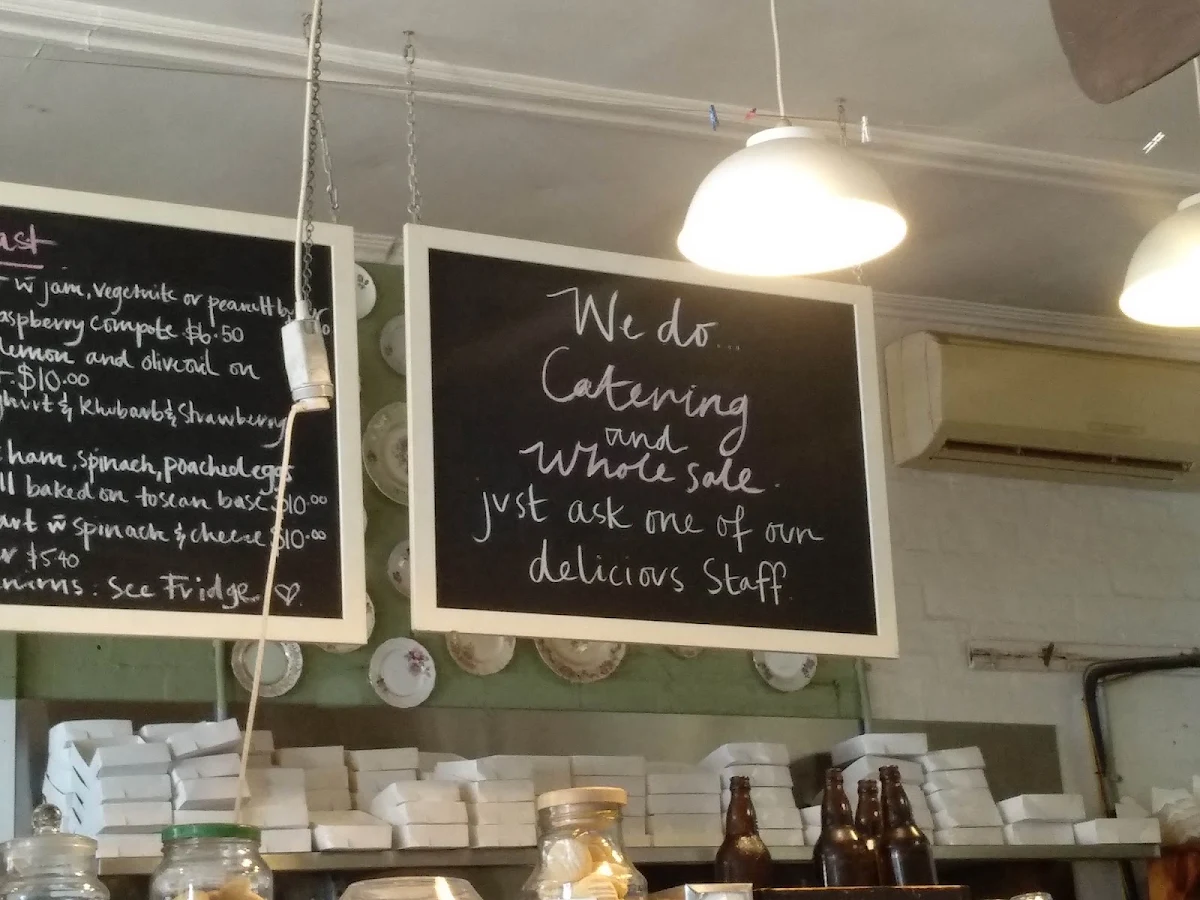 ast
w̄ jam, vegemite or peanutt
aspberry compote $6.50
lemon and olive oil on
t. $10.00
ghurt & Rhubarb & Strawberry
ham, spinach, poached eggs
ll baked on toscan base $10.00
art w̄ spinach & cheese $10.00
r $5.40
See Fridge ♡
We do...
Catering
and
Whole sale.
just ask one of our
delicious Staff.